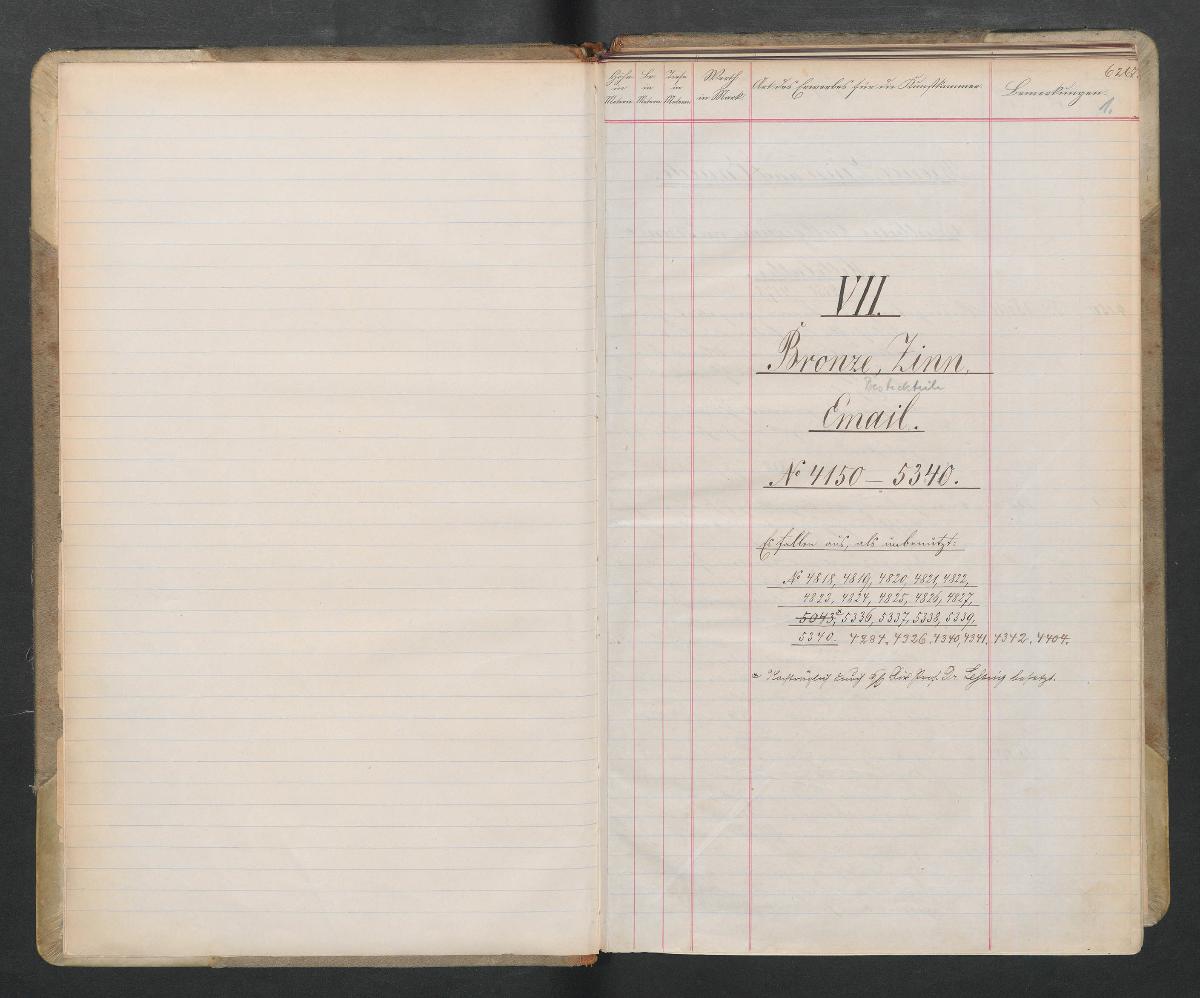 Höhe in Metern
Br. in Metern
Tiefe in Metern
Werth in Mark.
Art des Erwerbes für die Kunstkammer.
Bemerkungen.
1.
VII.
Bronze, Zinn.
Besteckteile
Email.
No 4150 – 5340.
Es fallen aus, als unbenützt:
No 4818, 4819, 4820, 4821, 4822,
4823, 4824, 4825, 4826, 4827,
5043,* 5336, 5337, 5338, 5339,
5340. 4284. 4326. 4340, 4341. 4342. 4404.
* Nachträglich durch Dir. Prof. Dr. besetzt.